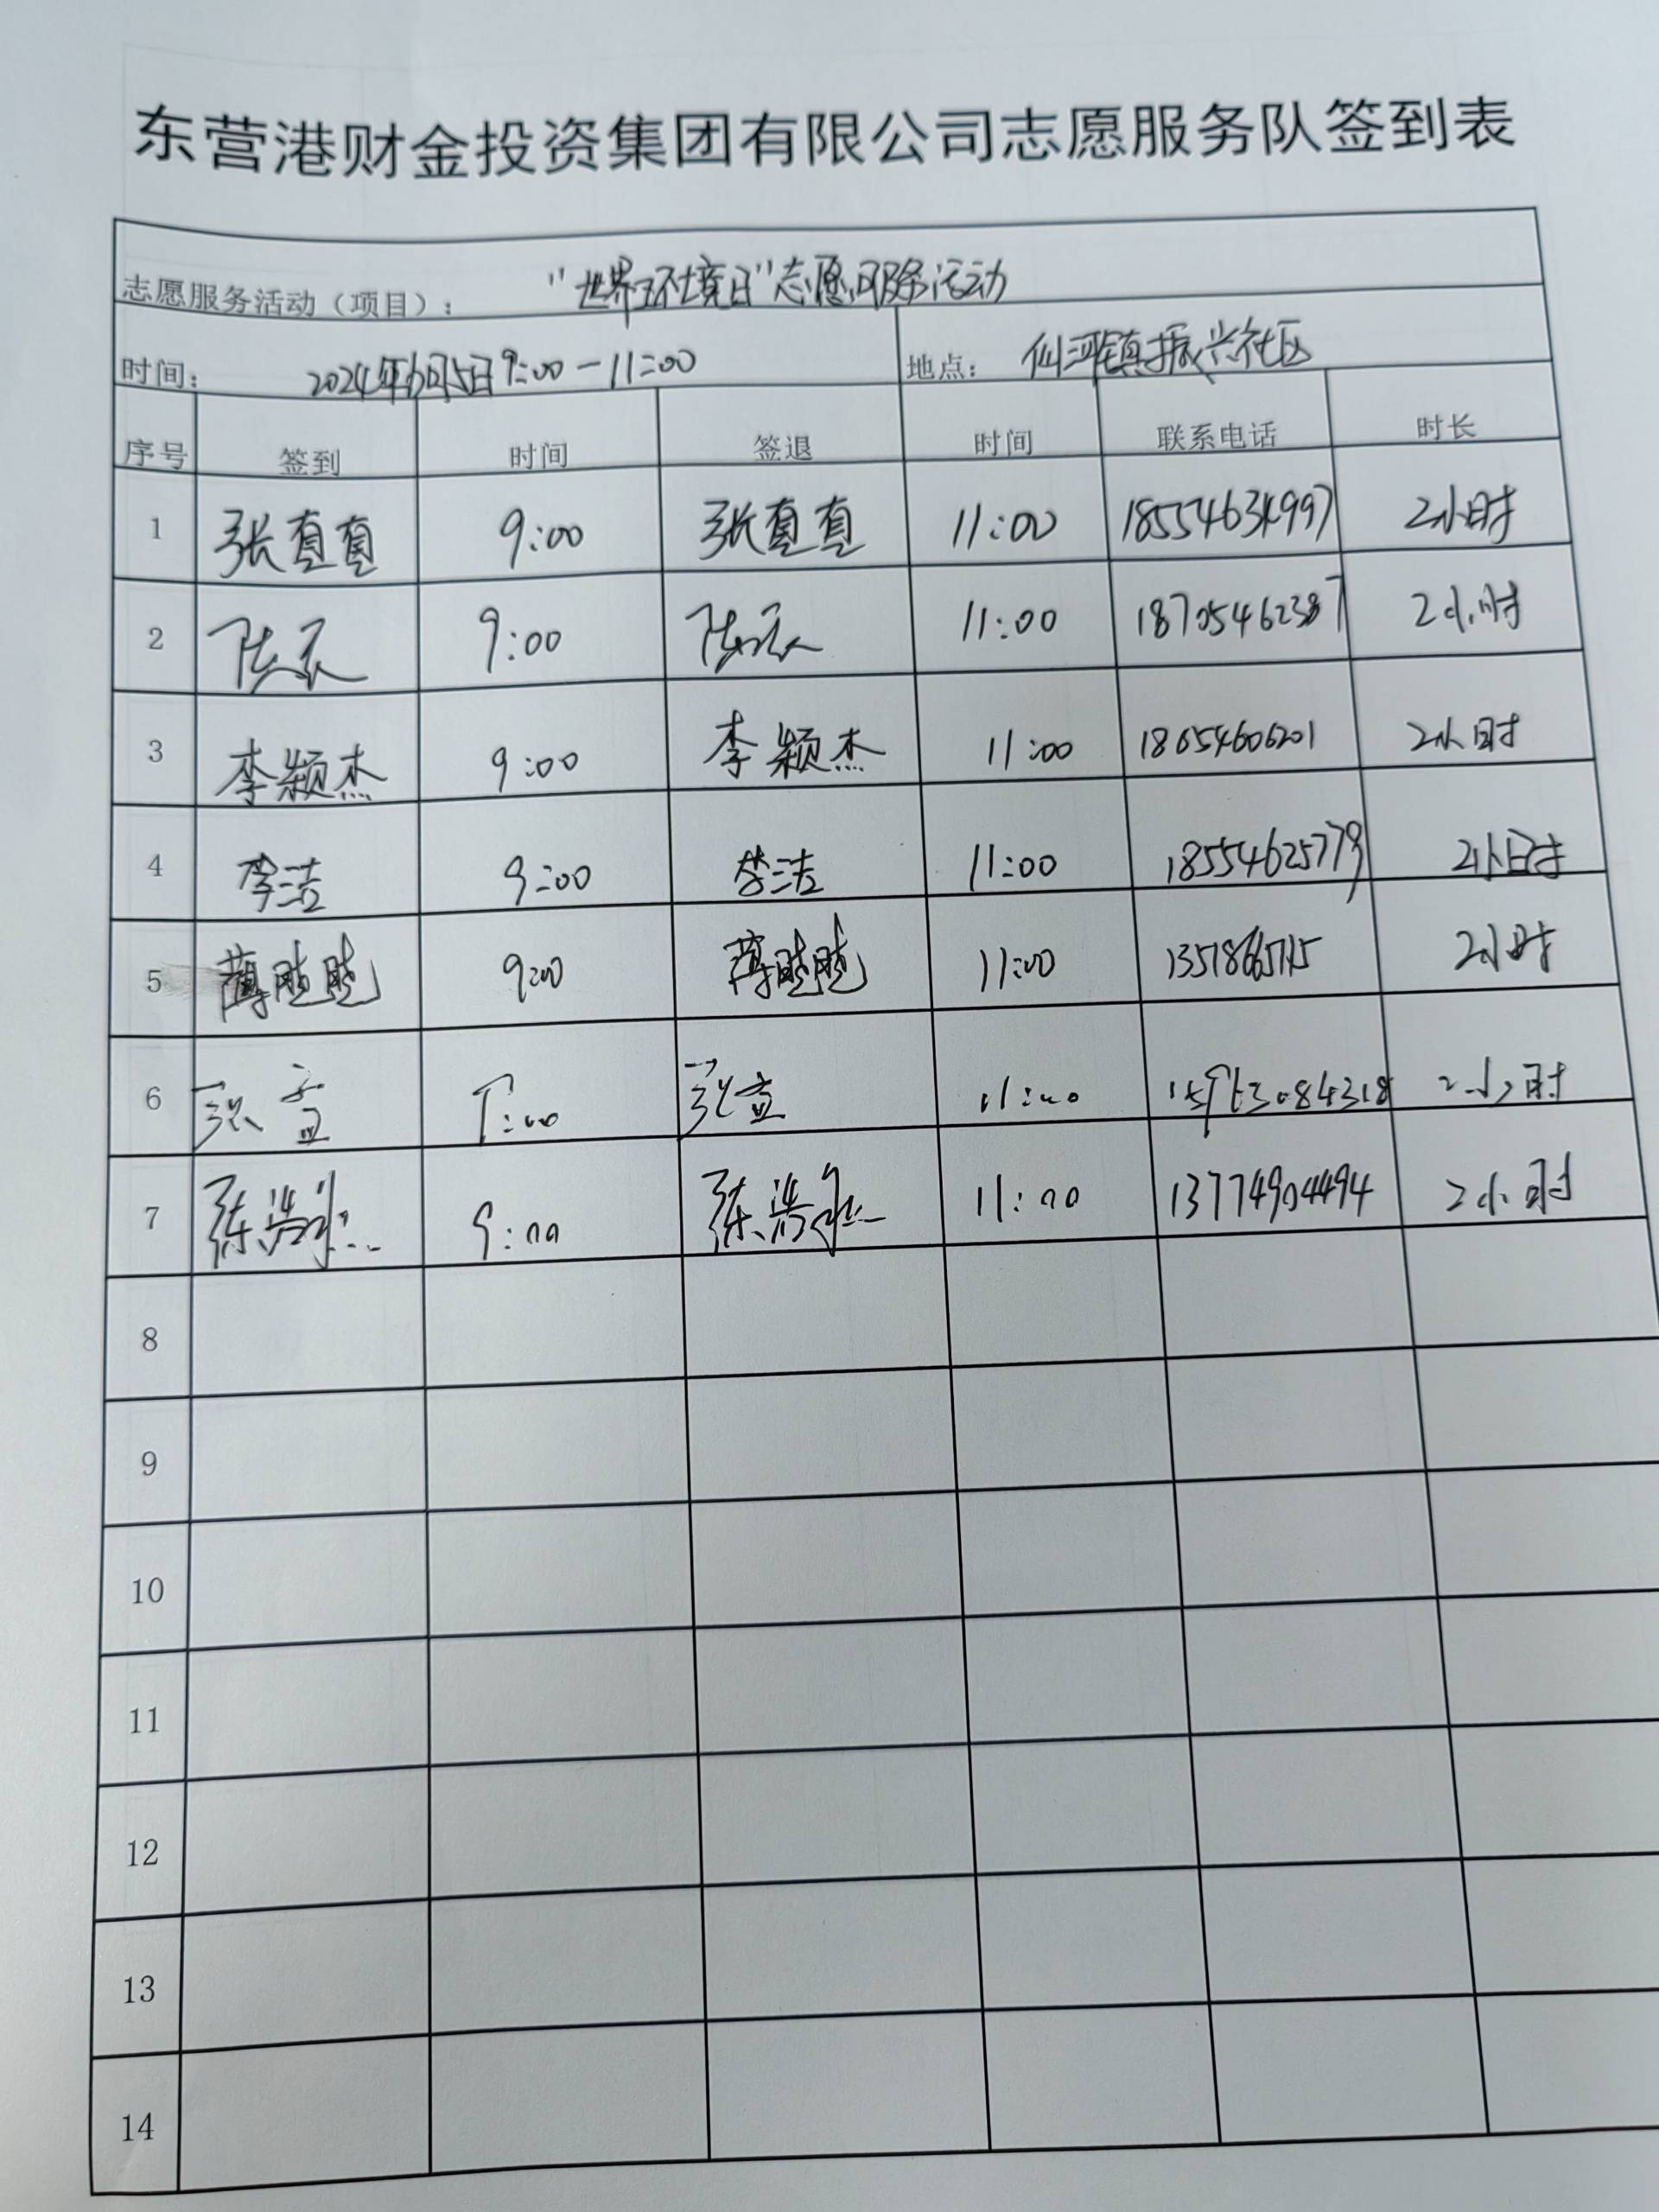 东营港财金投资集团有限公司志愿服务队签到表
志愿服务活动（项目）： “世界环境日”志愿服务活动
时间： 2024年6月5日9:00-11:00 地点： 仙河镇振兴社区
序号 签到 时间 签退 时间 联系电话 时长
1 张真真 9:00 张真真 11:00 18554634997 2小时
2 9:00 11:00 18705462387 2小时
3 李颖杰 9:00 李颖杰 11:00 18654606201 2小时
4 李洁 9:00 李洁 11:00 18554625779 2小时
5 9:00 11:00 2小时
6 9:00 11:00 2小时
7 9:00 11:00 13774904494 2小时
8
9
10
11
12
13
14